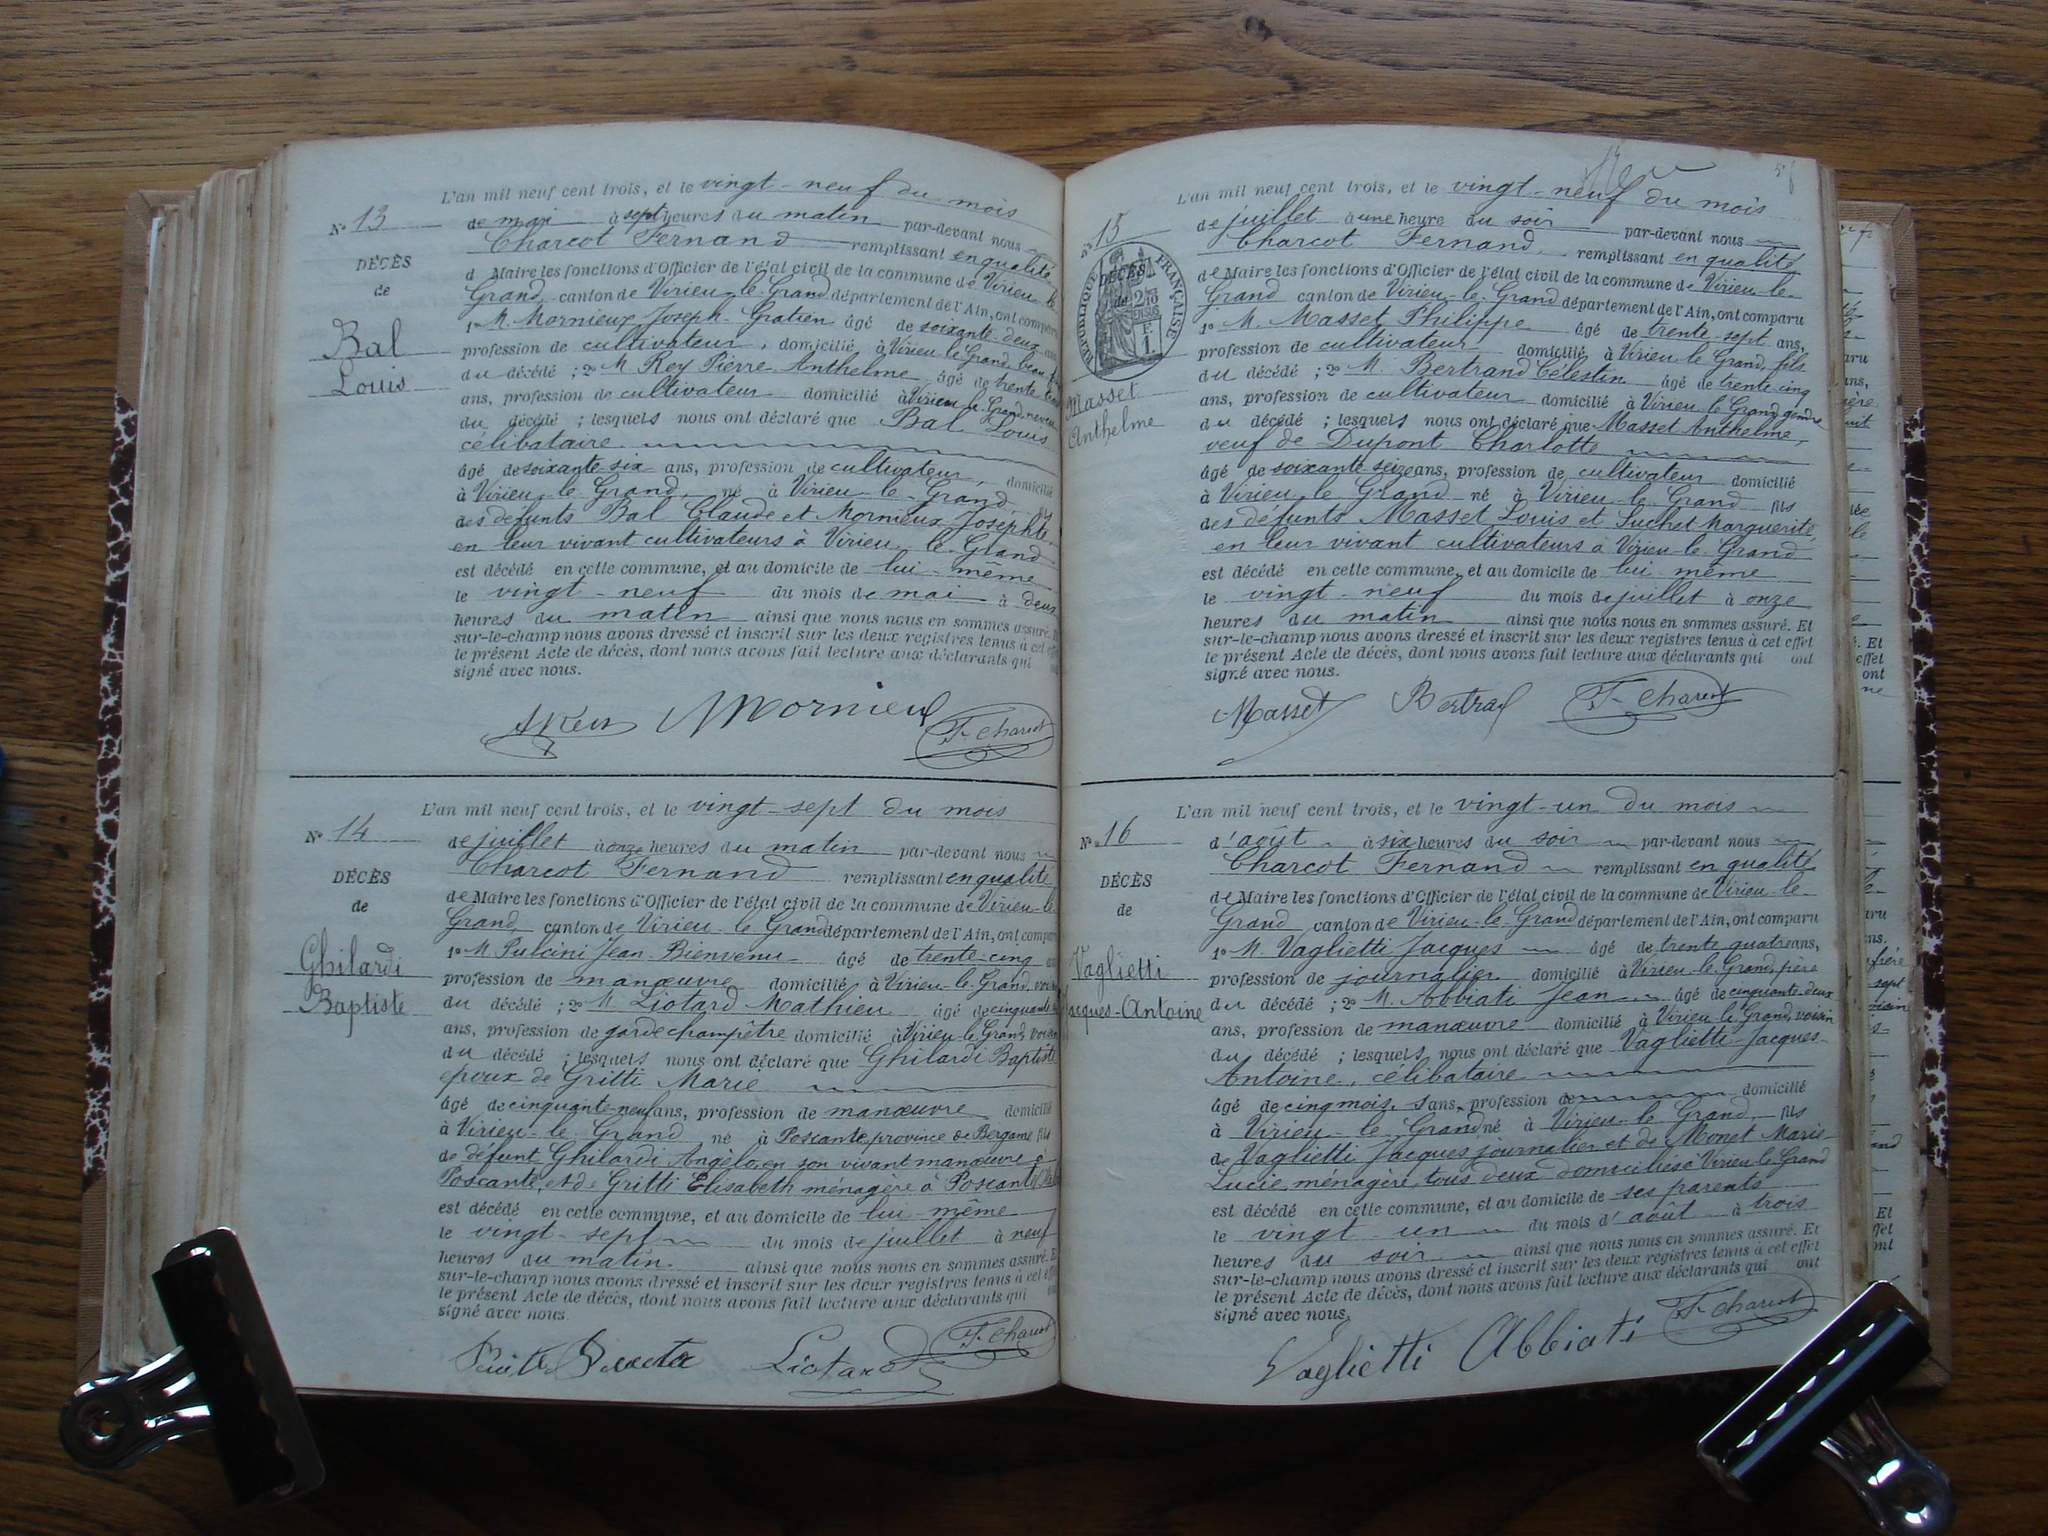 L'an mil neuf cent trois, et le vingt-neuf du mois
No 13
de mai à sept heures du matin par-devant nous
Charcot Fernand remplissant en qualité
DÉCÈS
d Maire les fonctions d'Officier de l'état civil de la commune de Virieu-le-
de
Grand canton de Virieu-le-Grand département de l'Ain, ont comparu
1o M. Mornieux Joseph-Gratien âgé de soixante-deux ans
Bal
profession de cultivateur, domicilié à Virieu-le-Grand, beau
Louis
du décédé ; 2o M Rey Pierre Anthelme âgé de trente
ans, profession de cultivateur domicilié à Virieu-le-Grand, neveu
du décédé ; lesquels nous ont déclaré que Bal Louis
célibataire
âgé de soixante-six ans, profession de cultivateur, domicilié
à Virieu-le-Grand, né à Virieu-le-Grand fils
des défunts Bal Claude et Mornieux Josephte,
en leur vivant cultivateurs à Virieu-le-Grand
est décédé en cette commune, et au domicile de lui-même
le vingt-neuf du mois de mai à deux
heures du matin ainsi que nous nous en sommes assuré. Et
sur-le-champ nous avons dressé et inscrit sur les deux registres tenus à cet effet
le présent Acte de décès, dont nous avons fait lecture aux déclarants qui
signé avec nous.
Mornieux F. Charcot
L'an mil neuf cent trois, et le vingt-sept du mois
No 14
de juillet à onze heures du matin par-devant nous
Charcot Fernand remplissant en qualité
DÉCÈS
de Maire les fonctions d'Officier de l'état civil de la commune de Virieu-le-
de
Grand, canton de Virieu-le-Grand département de l'Ain, ont comparu
Ghilardi
1o M. Pulcini Jean-Bienvenu âgé de trente-cinq
profession de manœuvre domicilié à Virieu-le-Grand, voisin
Baptiste
du décédé ; 2o M. Liotard Mathieu âgé de cinquante
ans, profession de garde champêtre domicilié à Virieu-le-Grand, voisin
du décédé ; lesquels nous ont déclaré que Ghilardi Baptiste
époux de Gritti Marie
âgé de cinquante-neuf ans, profession de manœuvre domicilié
à Virieu-le-Grand né à Poscante, province de Bergame fils
de défunt Ghilardi Angèlo, en son vivant manœuvre à
Poscante, et de Gritti Elisabeth ménagère à Poscante
est décédé en cette commune, et au domicile de lui-même
le vingt-sept du mois de juillet à neuf
heures du matin. ainsi que nous nous en sommes assuré. Et
sur-le-champ nous avons dressé et inscrit sur les deux registres tenus à cet effet
le présent Acte de décès, dont nous avons fait lecture aux déclarants qui
signé avec nous.
Liotard F. Charcot
L'an mil neuf cent trois, et le vingt-neuf du mois
No 15
de juillet à une heure du soir par-devant nous
Charcot Fernand, remplissant en qualité
RÉPUBLIQUE FRANÇAISE
DÉCÈS
de Maire les fonctions d'Officier de l'état civil de la commune de Virieu-le-
de
Grand canton de Virieu-le-Grand département de l'Ain, ont comparu
1o M. Masset Philippe âgé de trente-sept ans,
profession de cultivateur domicilié à Virieu-le-Grand, fils
du décédé ; 2o M. Bertrand Célestin âgé de trente-cinq
Masset
ans, profession de cultivateur domicilié à Virieu-le-Grand, gendre
Anthelme
du décédé ; lesquels nous ont déclaré que Masset Anthelme,
veuf de Dupont Charlotte
âgé de soixante-seize ans, profession de cultivateur domicilié
à Virieu-le-Grand né à Virieu-le-Grand fils
des défunts Masset Louis et Suchet Marguerite,
en leur vivant cultivateurs à Virieu-le-Grand
est décédé en cette commune, et au domicile de lui même
le vingt-neuf du mois de juillet à onze
heures du matin ainsi que nous nous en sommes assuré. Et
sur-le-champ nous avons dressé et inscrit sur les deux registres tenus à cet effet
le présent Acte de décès, dont nous avons fait lecture aux déclarants qui ont
signé avec nous.
Masset Bertrand F. Charcot
L'an mil neuf cent trois, et le vingt-un du mois
No 16
d'août à six heures du soir par-devant nous
Charcot Fernand remplissant en qualité
DÉCÈS
de Maire les fonctions d'Officier de l'état civil de la commune de Virieu-le-
de
Grand canton de Virieu-le-Grand département de l'Ain, ont comparu
Vaglietti
1o M. Vaglietti Jacques âgé de trente quatre ans,
profession de journalier domicilié à Virieu-le-Grand, père
Jacques-Antoine
du décédé ; 2o M. Abbiati Jean âgé de cinquante-deux
ans, profession de manœuvre domicilié à Virieu-le-Grand, voisin
du décédé ; lesquels nous ont déclaré que Vaglietti Jacques-
Antoine, célibataire
âgé de cinq mois, sans profession de domicilié
à Virieu-le-Grand né à Virieu-le-Grand, fils
de Vaglietti Jacques journalier et de Monet Marie-
Lucie, ménagère, tous deux domiciliés à Virieu-le-Grand
est décédé en cette commune, et au domicile de ses parents
le vingt-un du mois d'août à trois
heures du soir ainsi que nous nous en sommes assuré. Et
sur-le-champ nous avons dressé et inscrit sur les deux registres tenus à cet effet
le présent Acte de décès, dont nous avons fait lecture aux déclarants qui ont
signé avec nous.
Vaglietti Abbiati F. Charcot